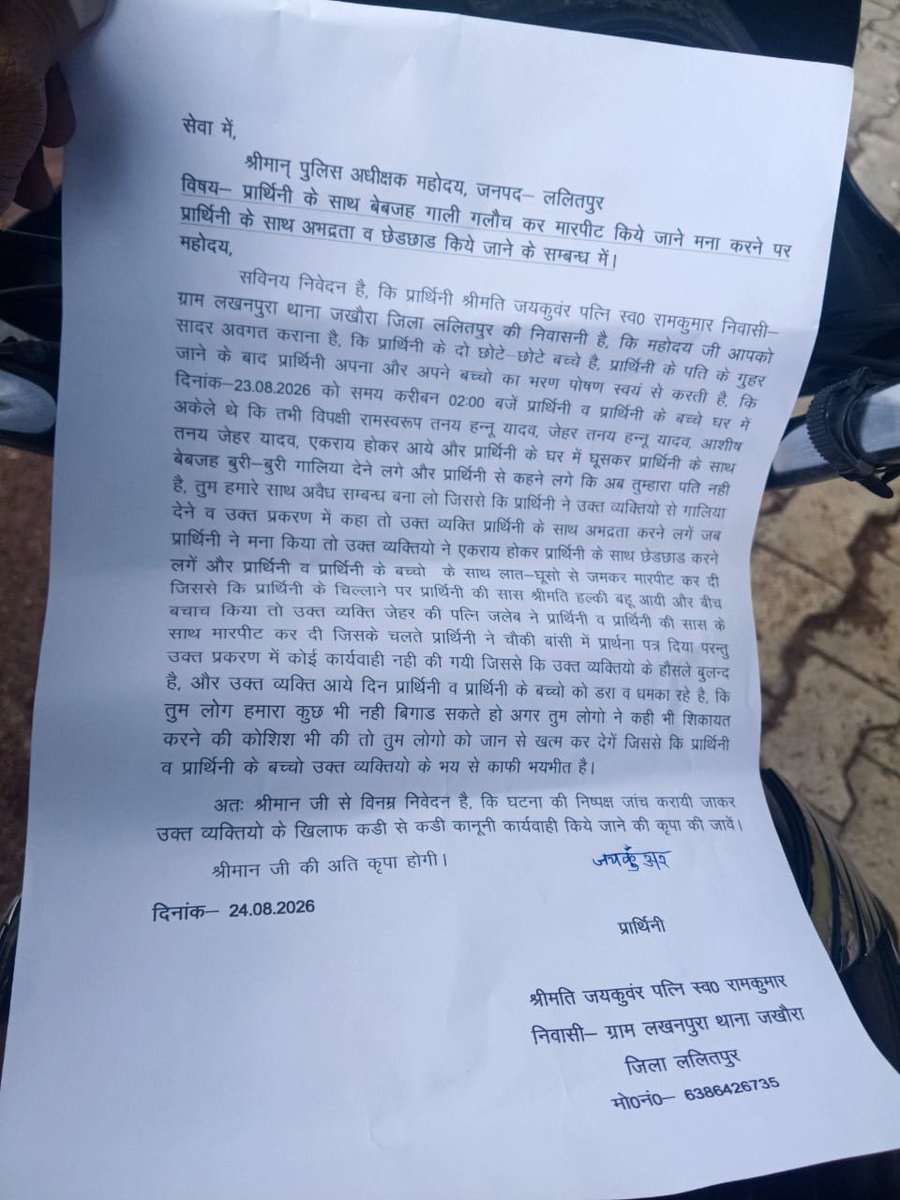 सेवा में,
श्रीमान् पुलिस अधीक्षक महोदय, जनपद– ललितपुर
विषय– प्रार्थिनी के साथ बेबजह गाली गलौच कर मारपीट किये जाने मना करने पर
प्रार्थिनी के साथ अभद्रता व छेडछाड किये जाने के सम्बन्ध में।
महोदय,
सविनय निवेदन है, कि प्रार्थिनी श्रीमति जयकुवंर पत्नि स्व0 रामकुमार निवासी–
ग्राम लखनपुरा थाना जखौरा जिला ललितपुर की निवासनी है, कि महोदय जी आपको
सादर अवगत कराना है, कि प्रार्थिनी के दो छोटे–छोटे बच्चे है, प्रार्थिनी के पति के गुहर
जाने के बाद प्रार्थिनी अपना और अपने बच्चो का भरण पोषण स्वयं से करती है, कि
दिनांक–23.08.2026 को समय करीबन 02:00 बजें प्रार्थिनी व प्रार्थिनी के बच्चे घर में
अकेले थे कि तभी विपक्षी रामस्वरूप तनय हन्नू यादव, जेहर तनय हन्नू यादव, आशीष
तनय जेहर यादव, एकराय होकर आये और प्रार्थिनी के घर में घूसकर प्रार्थिनी के साथ
बेबजह बुरी–बुरी गालिया देने लगे और प्रार्थिनी से कहने लगे कि अब तुम्हारा पति नही
है, तुम हमारे साथ अवैध सम्बन्ध बना लो जिससे कि प्रार्थिनी ने उक्त व्यक्तियो से गालिया
देने व उक्त प्रकरण में कहा तो उक्त व्यक्ति प्रार्थिनी के साथ अभद्रता करने लगें जब
प्रार्थिनी ने मना किया तो उक्त व्यक्तियो ने एकराय होकर प्रार्थिनी के साथ छेडछाड करने
लगें और प्रार्थिनी व प्रार्थिनी के बच्चो के साथ लात–घूसो से जमकर मारपीट कर दी
जिससे कि प्रार्थिनी के चिल्लाने पर प्रार्थिनी की सास श्रीमति हल्की बहू आयी और बीच
बचाच किया तो उक्त व्यक्ति जेहर की पत्नि जलेब ने प्रार्थिनी व प्रार्थिनी की सास के
साथ मारपीट कर दी जिसके चलते प्रार्थिनी ने चौकी बांसी में प्रार्थना पत्र दिया परन्तु
उक्त प्रकरण में कोई कार्यवाही नही की गयी जिससे कि उक्त व्यक्तियो के हौसले बुलन्द
है, और उक्त व्यक्ति आये दिन प्रार्थिनी व प्रार्थिनी के बच्चो को डरा व धमका रहे है, कि
तुम लोग हमारा कुछ भी नही बिगाड सकते हो अगर तुम लोगो ने कही भी शिकायत
करने की कोशिश भी की तो तुम लोगो को जान से खत्म कर देगें जिससे कि प्रार्थिनी
व प्रार्थिनी के बच्चो उक्त व्यक्तियो के भय से काफी भयभीत है।
अतः श्रीमान जी से विनम्र निवेदन है, कि घटना की निष्पक्ष जांच करायी जाकर
उक्त व्यक्तियो के खिलाफ कडी से कडी कानूनी कार्यवाही किये जाने की कृपा की जावें।
श्रीमान जी की अति कृपा होगी।
जयकुँअर
दिनांक– 24.08.2026
प्रार्थिनी
श्रीमति जयकुवंर पत्नि स्व0 रामकुमार
निवासी– ग्राम लखनपुरा थाना जखौरा
जिला ललितपुर
मो0नं0– 6386426735